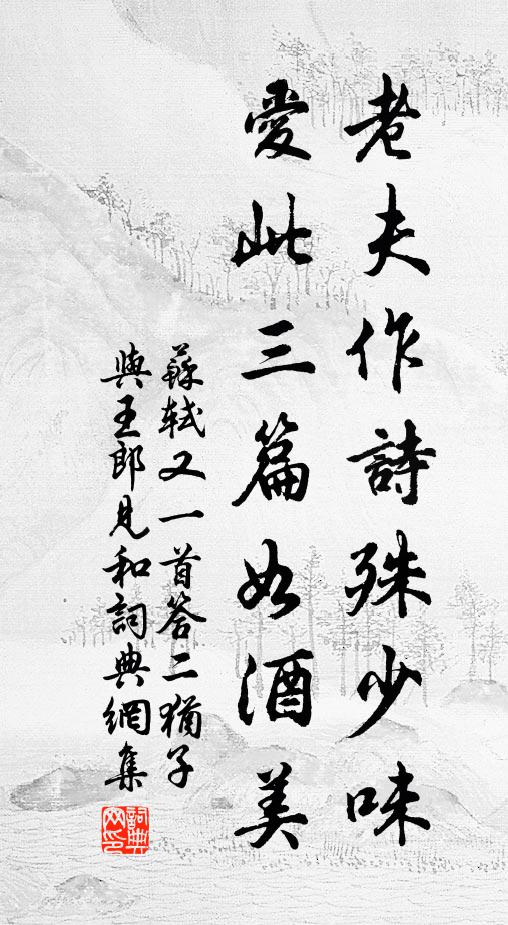 老夫作詩殊少味
愛此三篇如酒美
蘇軾又一首答二猶子
與王郎見和詞典網集
詞典
网印